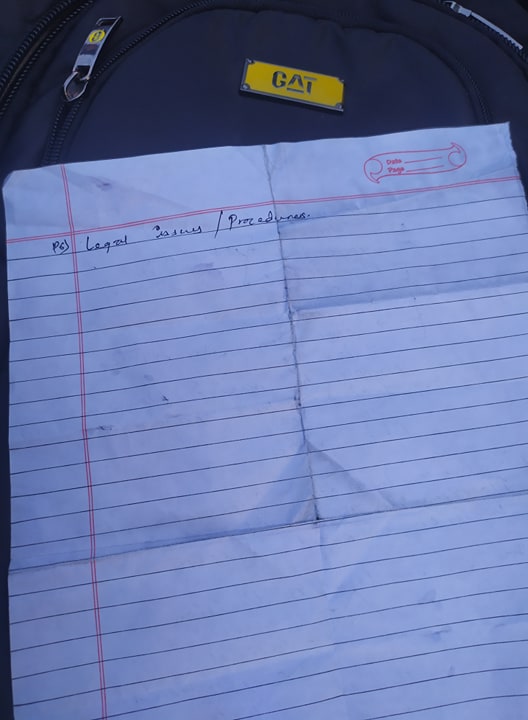 CAT
Date
Page
P6) Legal issues / Procedures.